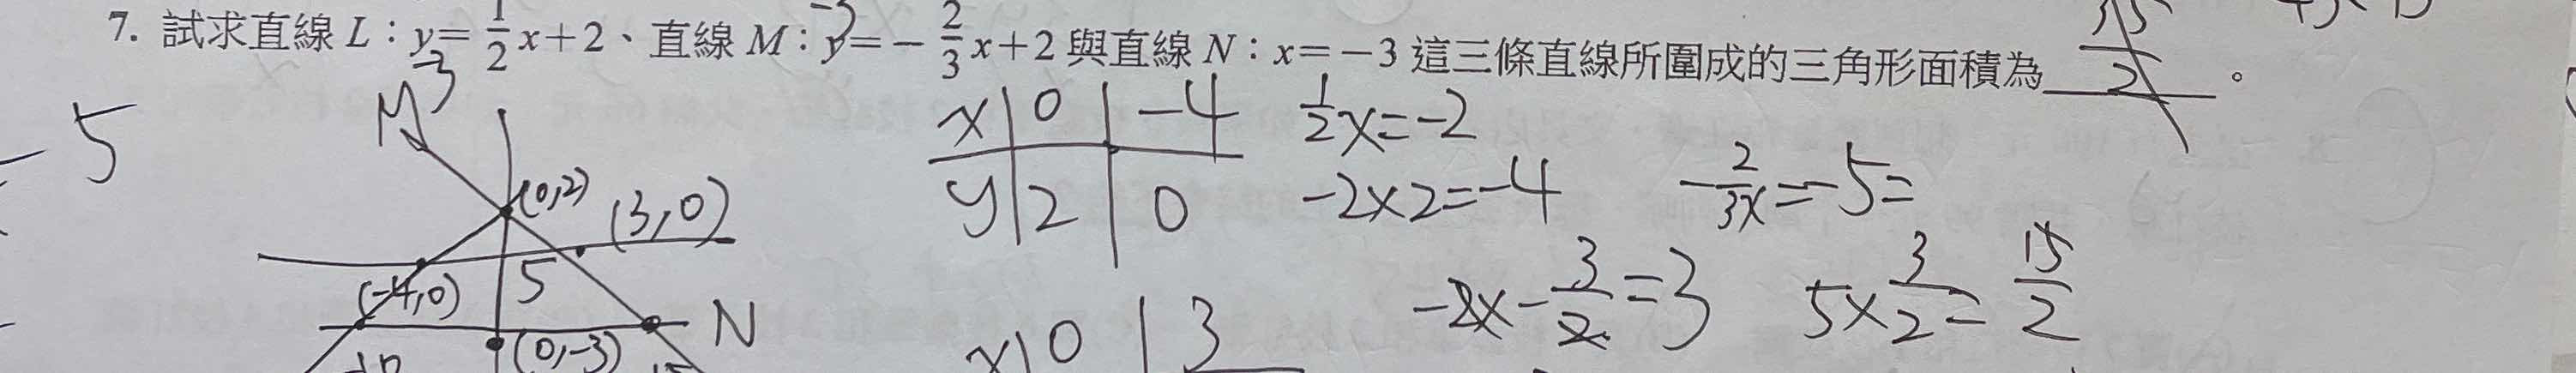 7. 試求直線 L：y=1/2x+2、直線 M：y=-2/3x+2 與直線 N：x=-3 這三條直線所圍成的三角形面積為 15/2 。
-3
-3
5
M
x | 0 | -4
y | 2 | 0
1/2x=-2
-2×2=-4
-2/3x=-5=
(0,2)
(3,0)
(-4,0)
5
N
(0,-3)
x | 0 | 3
-2x-3/2=3
5×3/2=15/2